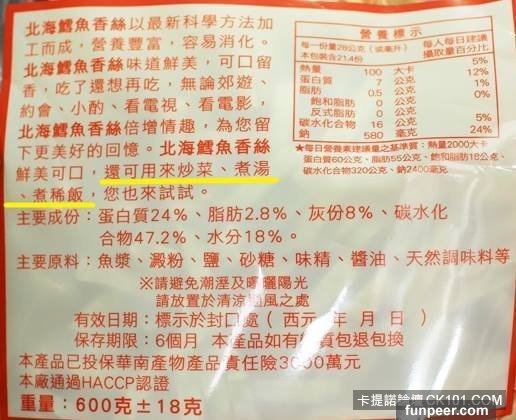 北海鱈魚香絲以最新科學方法加
工而成，營養豐富，容易消化。
北海鱈魚香絲味道鮮美，可口留
香，吃了還想再吃，無論郊遊、
約會、小酌、看電視、看電影，
北海鱈魚香絲倍增情趣，為您留
下更美好的回憶。北海鱈魚香絲
鮮美可口，還可用來炒菜、煮湯
、煮稀飯，您也來試試。
營養標示
每一份量28公克（或毫升） 每人每日建議
本包裝含21.4份 攝取量百分比
熱量 100 大卡 5%
蛋白質 7 公克 12%
脂肪 0.5 公克 1%
飽和脂肪 0 公克 0%
反式脂肪 0 公克
碳水化合物 16 公克 5%
鈉 580 毫克 24%
★每日營養素建議量之基準質：熱量2000大卡
蛋白質60公克、脂肪55公克、飽和脂肪18公克、
碳水化合物320公克、鈉2400毫克
主要成份：蛋白質24%、脂肪2.8%、灰份8%、碳水化
合物47.2%、水分18%。
主要原料：魚漿、澱粉、鹽、砂糖、味精、醬油、天然調味料等
※請避免潮溼及曝曬陽光
請放置於清涼通風之處
有效日期：標示於封口處（西元 年 月 日）
保存期限：6個月 本產品如有變質包退包換
本產品已投保華南產物產品責任險3000萬元
本廠通過HACCP認證
重量：600克±18克
卡提諾論壇CK101.COM
funpeer.com